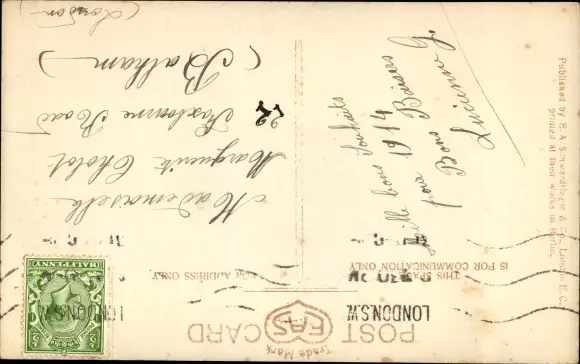 POST CARD
Trade Mark
EAS
THIS SPACE
IS FOR COMMUNICATION ONLY
FOR ADDRESS ONLY
HALFPENNY
LONDON.S.W.
LONDON.S.W.
Mille bons Souhaits
pour 1914
Bons Baisers
Lucienne J.
Mademoiselle
Marguerite Cholot
22 Foxbourne Road
(Balham)
(London)
Published by E. A. Schwerdtfeger & Co., London E.C.
printed at their works in Berlin.